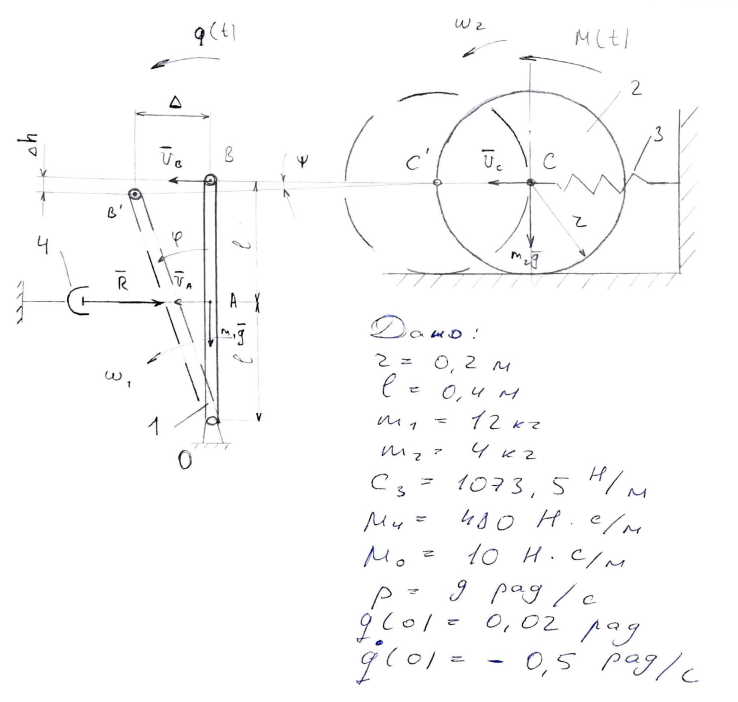 q(t)
ω₂
M(t)
Δ
2
Δh
3
V̄_B
B
ψ
C'
V̄_C
C
B'
4
φ
l
r
m₂ḡ
R̄
V̄_A
A
m₁ḡ
ω₁
l
1
O
Дано:
r = 0,2 м
l = 0,4 м
m₁ = 12 кг
m₂ = 4 кг
C₃ = 1073,5 Н/м
μ₄ = 480 Н·с/м
M₀ = 10 Н·с/м
p = 9 рад/с
q(0) = 0,02 рад
q̇(0) = - 0,5 рад/с